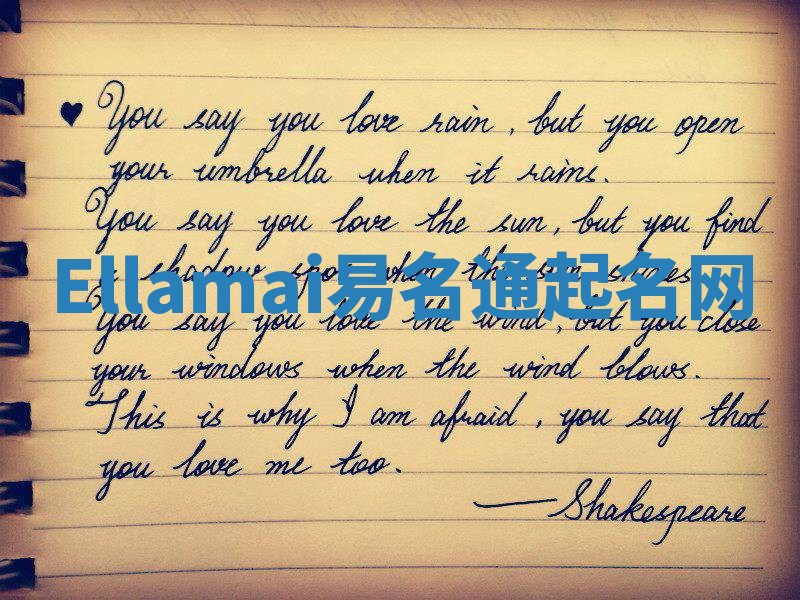 ♥ You say you love rain, but you open
your umbrella when it rains.
You say you love the sun, but you find
a shadow spot when the sun shines.
Ellamai易名通起名网
You say you love the wind, but you close
your windows when the wind blows.
This is why I am afraid, you say that
you love me too.
—Shakespeare